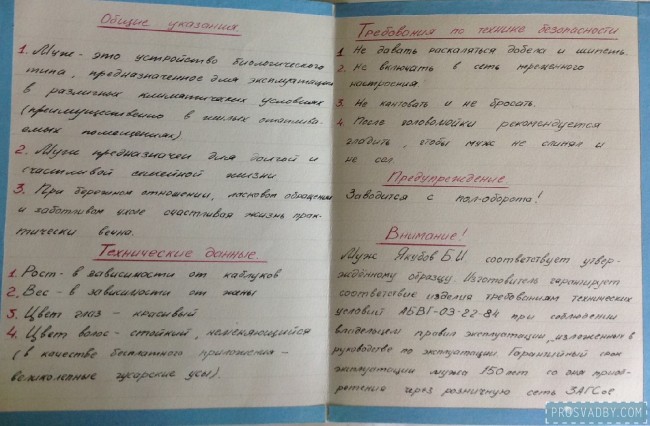 Общие указания.
1. Муж - это устройство биологического
типа, предназначенное для эксплуатации
в различных климатических условиях
(преимущественно в жилых отаплива-
емых помещениях)
2. Муж предназначен для долгой и
счастливой семейной жизни
3. При бережном отношении, ласковом обращении
и заботливом уходе счастливая жизнь прак-
тически вечна.
Технические данные.
1. Рост - в зависимости от каблуков
2. Вес - в зависимости от жены
3. Цвет глаз - красивый
4. Цвет волос - стойкий, неменяющийся
(в качестве бесплатного приложения -
великолепные гусарские усы).
Требования по технике безопасности
1 Не давать раскаляться добела и шипеть.
2. Не включать в сеть трёшенного
настроения
3. Не кантовать и не бросать.
4 После головомойки рекомендуется
гладить, чтобы муж не слинял и
не сел
Предупреждение.
Заводится с пол-оборота!
Внимание!
Муж Якубов Б И соответствует утвер-
ждённому образцу. Изготовитель гарантирует
соответствие изделия требованиям технических
условий АБВГ-03-22-84 при соблюдении
владельцем правил эксплуатации, изложенных в
руководстве по эксплуатации. Гарантийный срок
эксплуатации мужа 150 лет со дня приоб-
ретения через розничную сеть ЗАГСов
PROSVADBY.COM